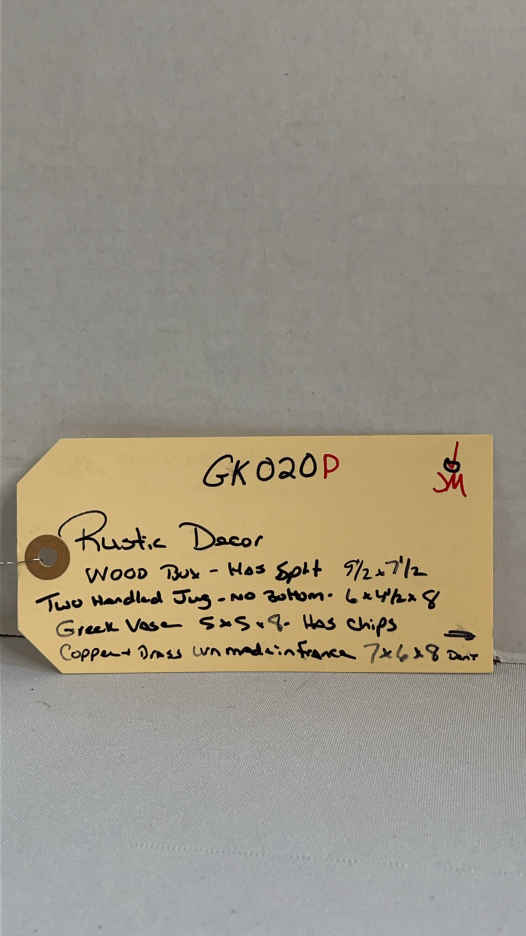 GK020P
JM
Rustic Decor
WOOD Box - Has Split 9 1/2 x 7 1/2
Two Handled Jug - No Bottom - 6 x 4 1/2 x 8
Greek Vase 5 x 5 x 8 - Has chips
Copper + Brass Urn made in France 7 x 6 x 8 Dent